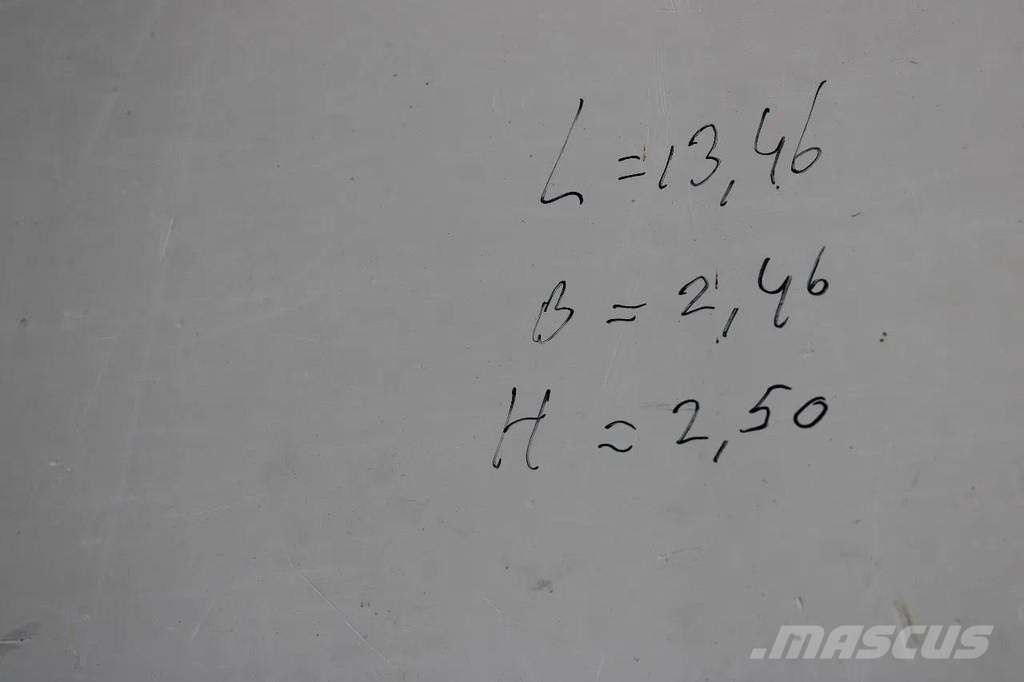 L = 13,46
B = 2,46
H ≈ 2,50
.MASCUS